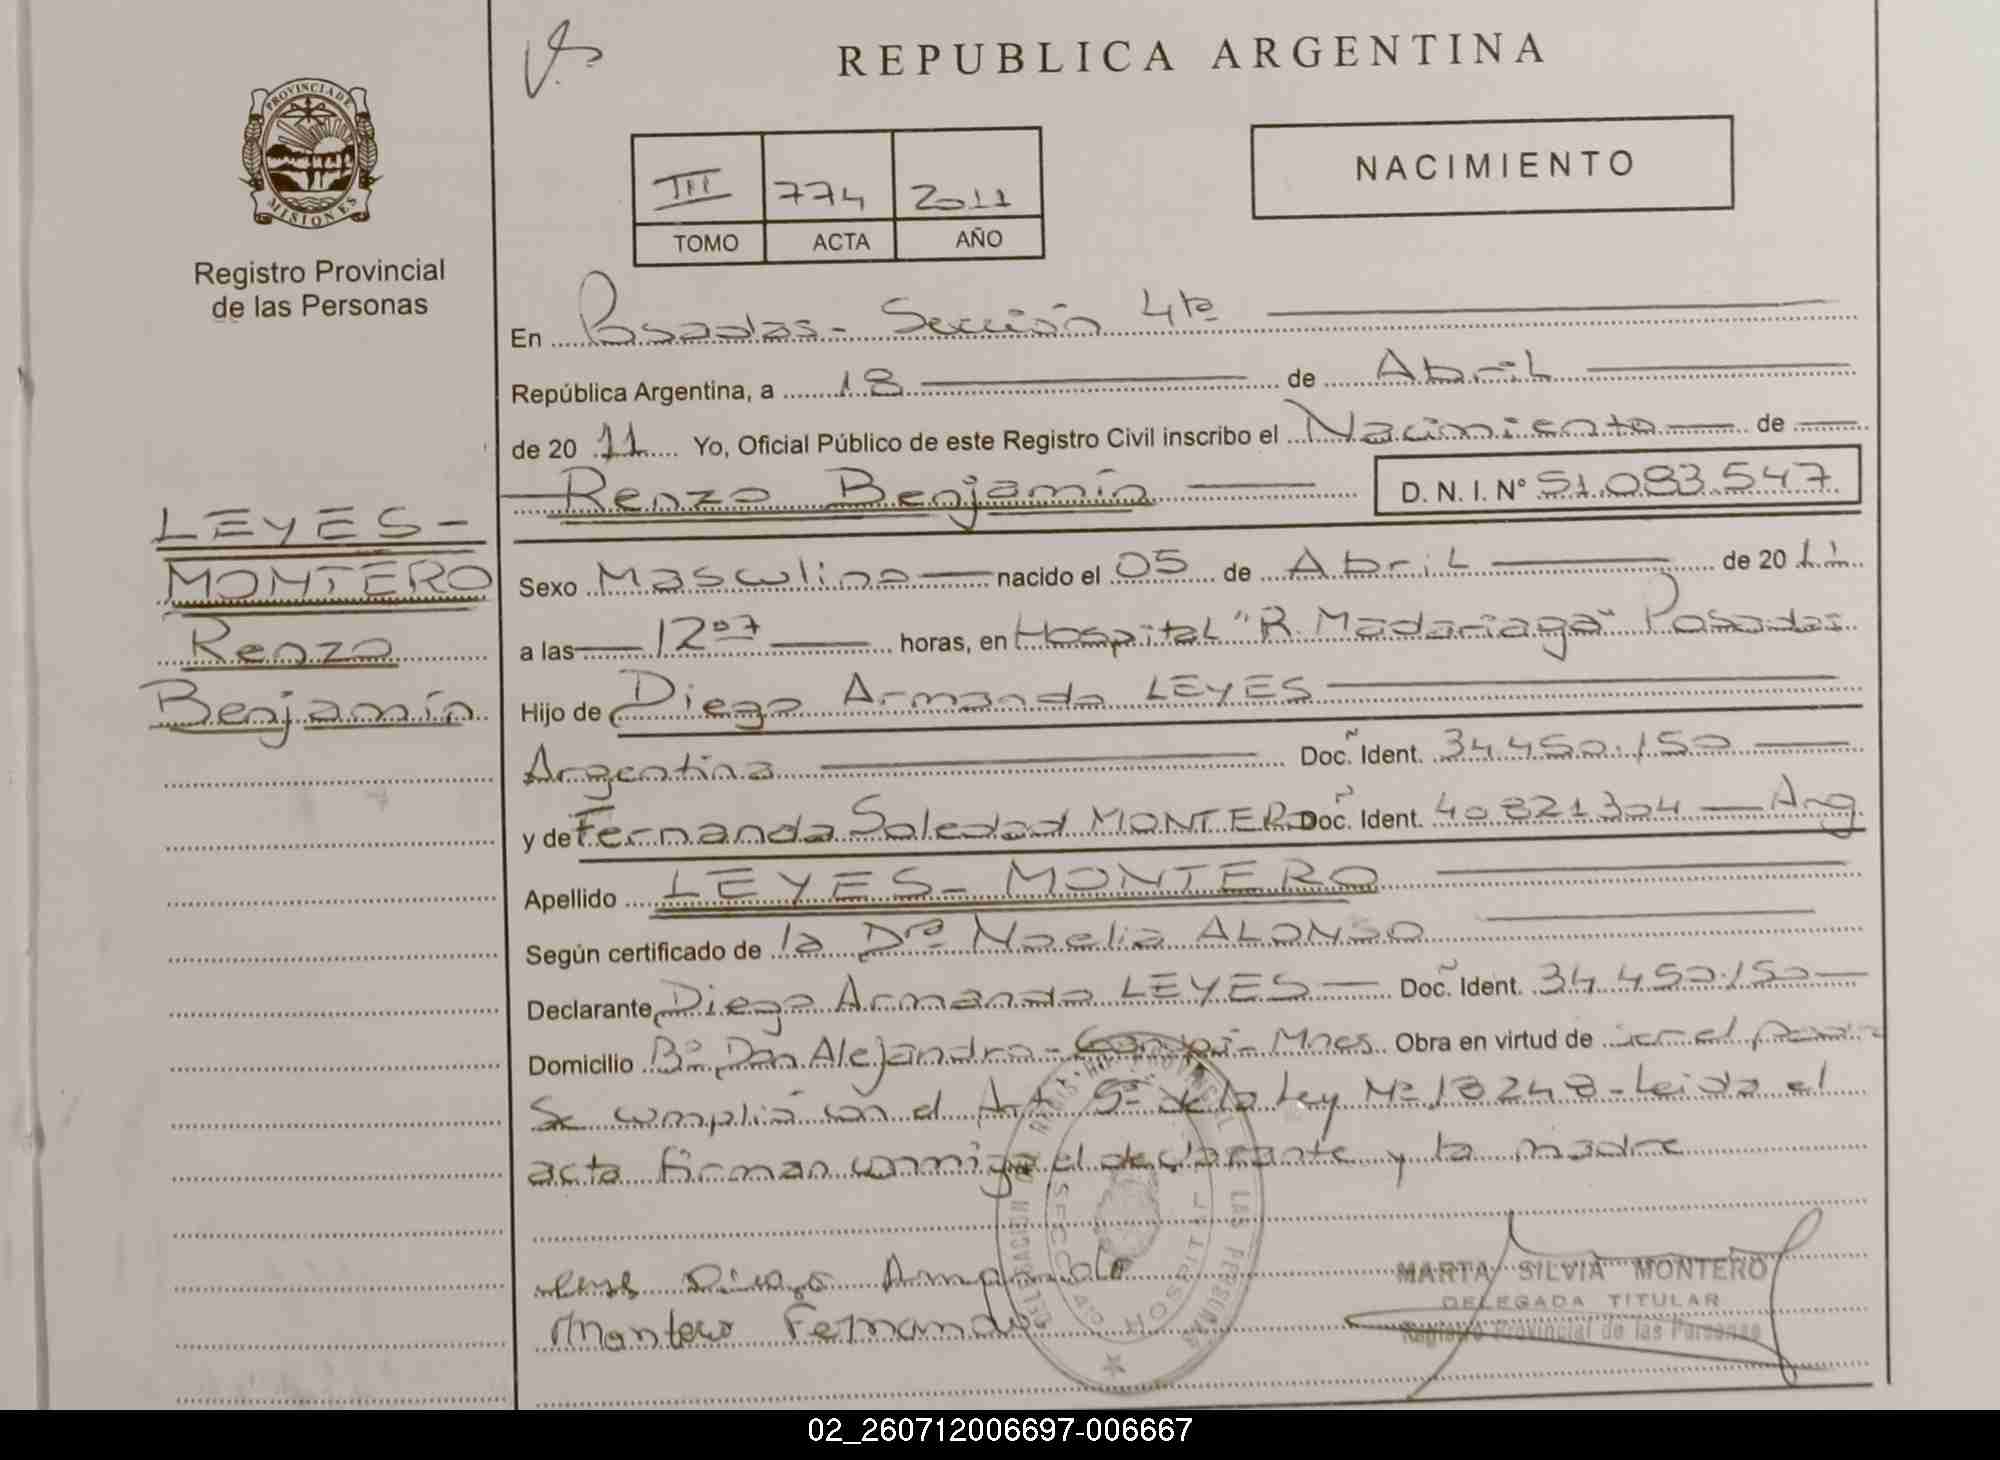 REPUBLICA ARGENTINA
PROVINCIA DE
MISIONES
Registro Provincial
de las Personas
III 774 2011
TOMO ACTA AÑO
NACIMIENTO
En Posadas - Sección 4ta
República Argentina, a 18 de Abril
de 20 11 Yo, Oficial Público de este Registro Civil inscribo el Nacimiento de
Renzo Benjamín D. N. I. Nº 51.083.547
LEYES -
MONTERO
Renzo
Benjamín
Sexo Masculino nacido el 05 de Abril de 20 11
a las 12 07 horas, en Hospital "R. Madariaga" Posadas
Hijo de Diego Armando LEYES
Argentina Doc. Ident. 34.450.150
y de Fernanda Soledad MONTERO Doc. Ident. 40821304 Arg
Apellido LEYES - MONTERO
Según certificado de la Dra Noelia ALONSO
Declarante Diego Armando LEYES Doc. Ident. 34.450.150
Domicilio Bº Don Alejandro - Garupá - Mnes. Obra en virtud de ser el padre
Se cumplió con el Art. 5º de la Ley Nº 18248 - Leida el
acta firman conmigo el declarante y la madre
Diego Armando
Montero Fernanda
MARTA SILVIA MONTERO
DELEGADA TITULAR
Registro Provincial de las Personas
HOSPITAL
02_260712006697-006667